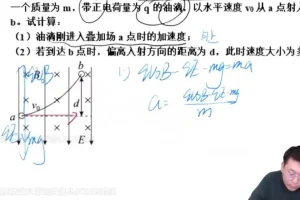 一个质量为 m、带正电荷量为 q 的油滴，以水平速度 v₀ 从 a 点射入
b。试计算：
（1）油滴刚进入叠加场 a 点时的加速度；
（2）若到达 b 点时，偏离入射方向的距离为 d，此时速度大小为多
B
b
v₀
d
a
E
qE
mg
1) qv₀B - qE - mg = ma
a = qv₀B-qE-mg
m